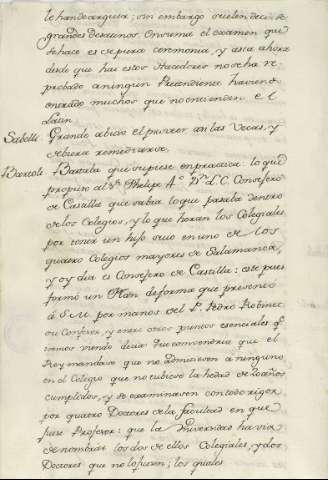 le han de arguir: sin embargo suelen decirse
grandes desatinos. En suma el examen que
se hace es de pura ceremonia, y hasta ahora
desde que hai estos Hacedores no se ha re-
probado a ningun Pretendiente haviendo
entrado muchos que no entienden el
Latin.
Sabelli Grande abuso el proveer asi las Vecas, y
debiera remediarse.
Bartoli Bastaba que supiese en practica: lo que
propuso al Sr. Phelipe 4º Dn L. C. Consejero
de Castilla que sabia lo que pasaba dentro
de los Colegios, y lo que hacian los Colegiales
por tener un hijo suio en uno de los
quatro Colegios maiores de Salamanca,
y oy dia es Consejero de Castilla: este pues
formó un Plan de forma que presentó
á S. M. por manos del P. Pedro Robinet
su Confesor, y entre otros puntos esenciales qe
iremos viendo decia que convendria que el
Rey mandase que no admitiesen a ninguno
en el Colegio que no tubiese la hedad de 20 años
cumplidos, y se examinasen con todo rigor
por quatro Doctores de la facultad en que
fuese Profesor: que la Universidad havia
de nombrar los dos de ellos Colegiales, y dos
Doctores que no lo fuesen; los quales